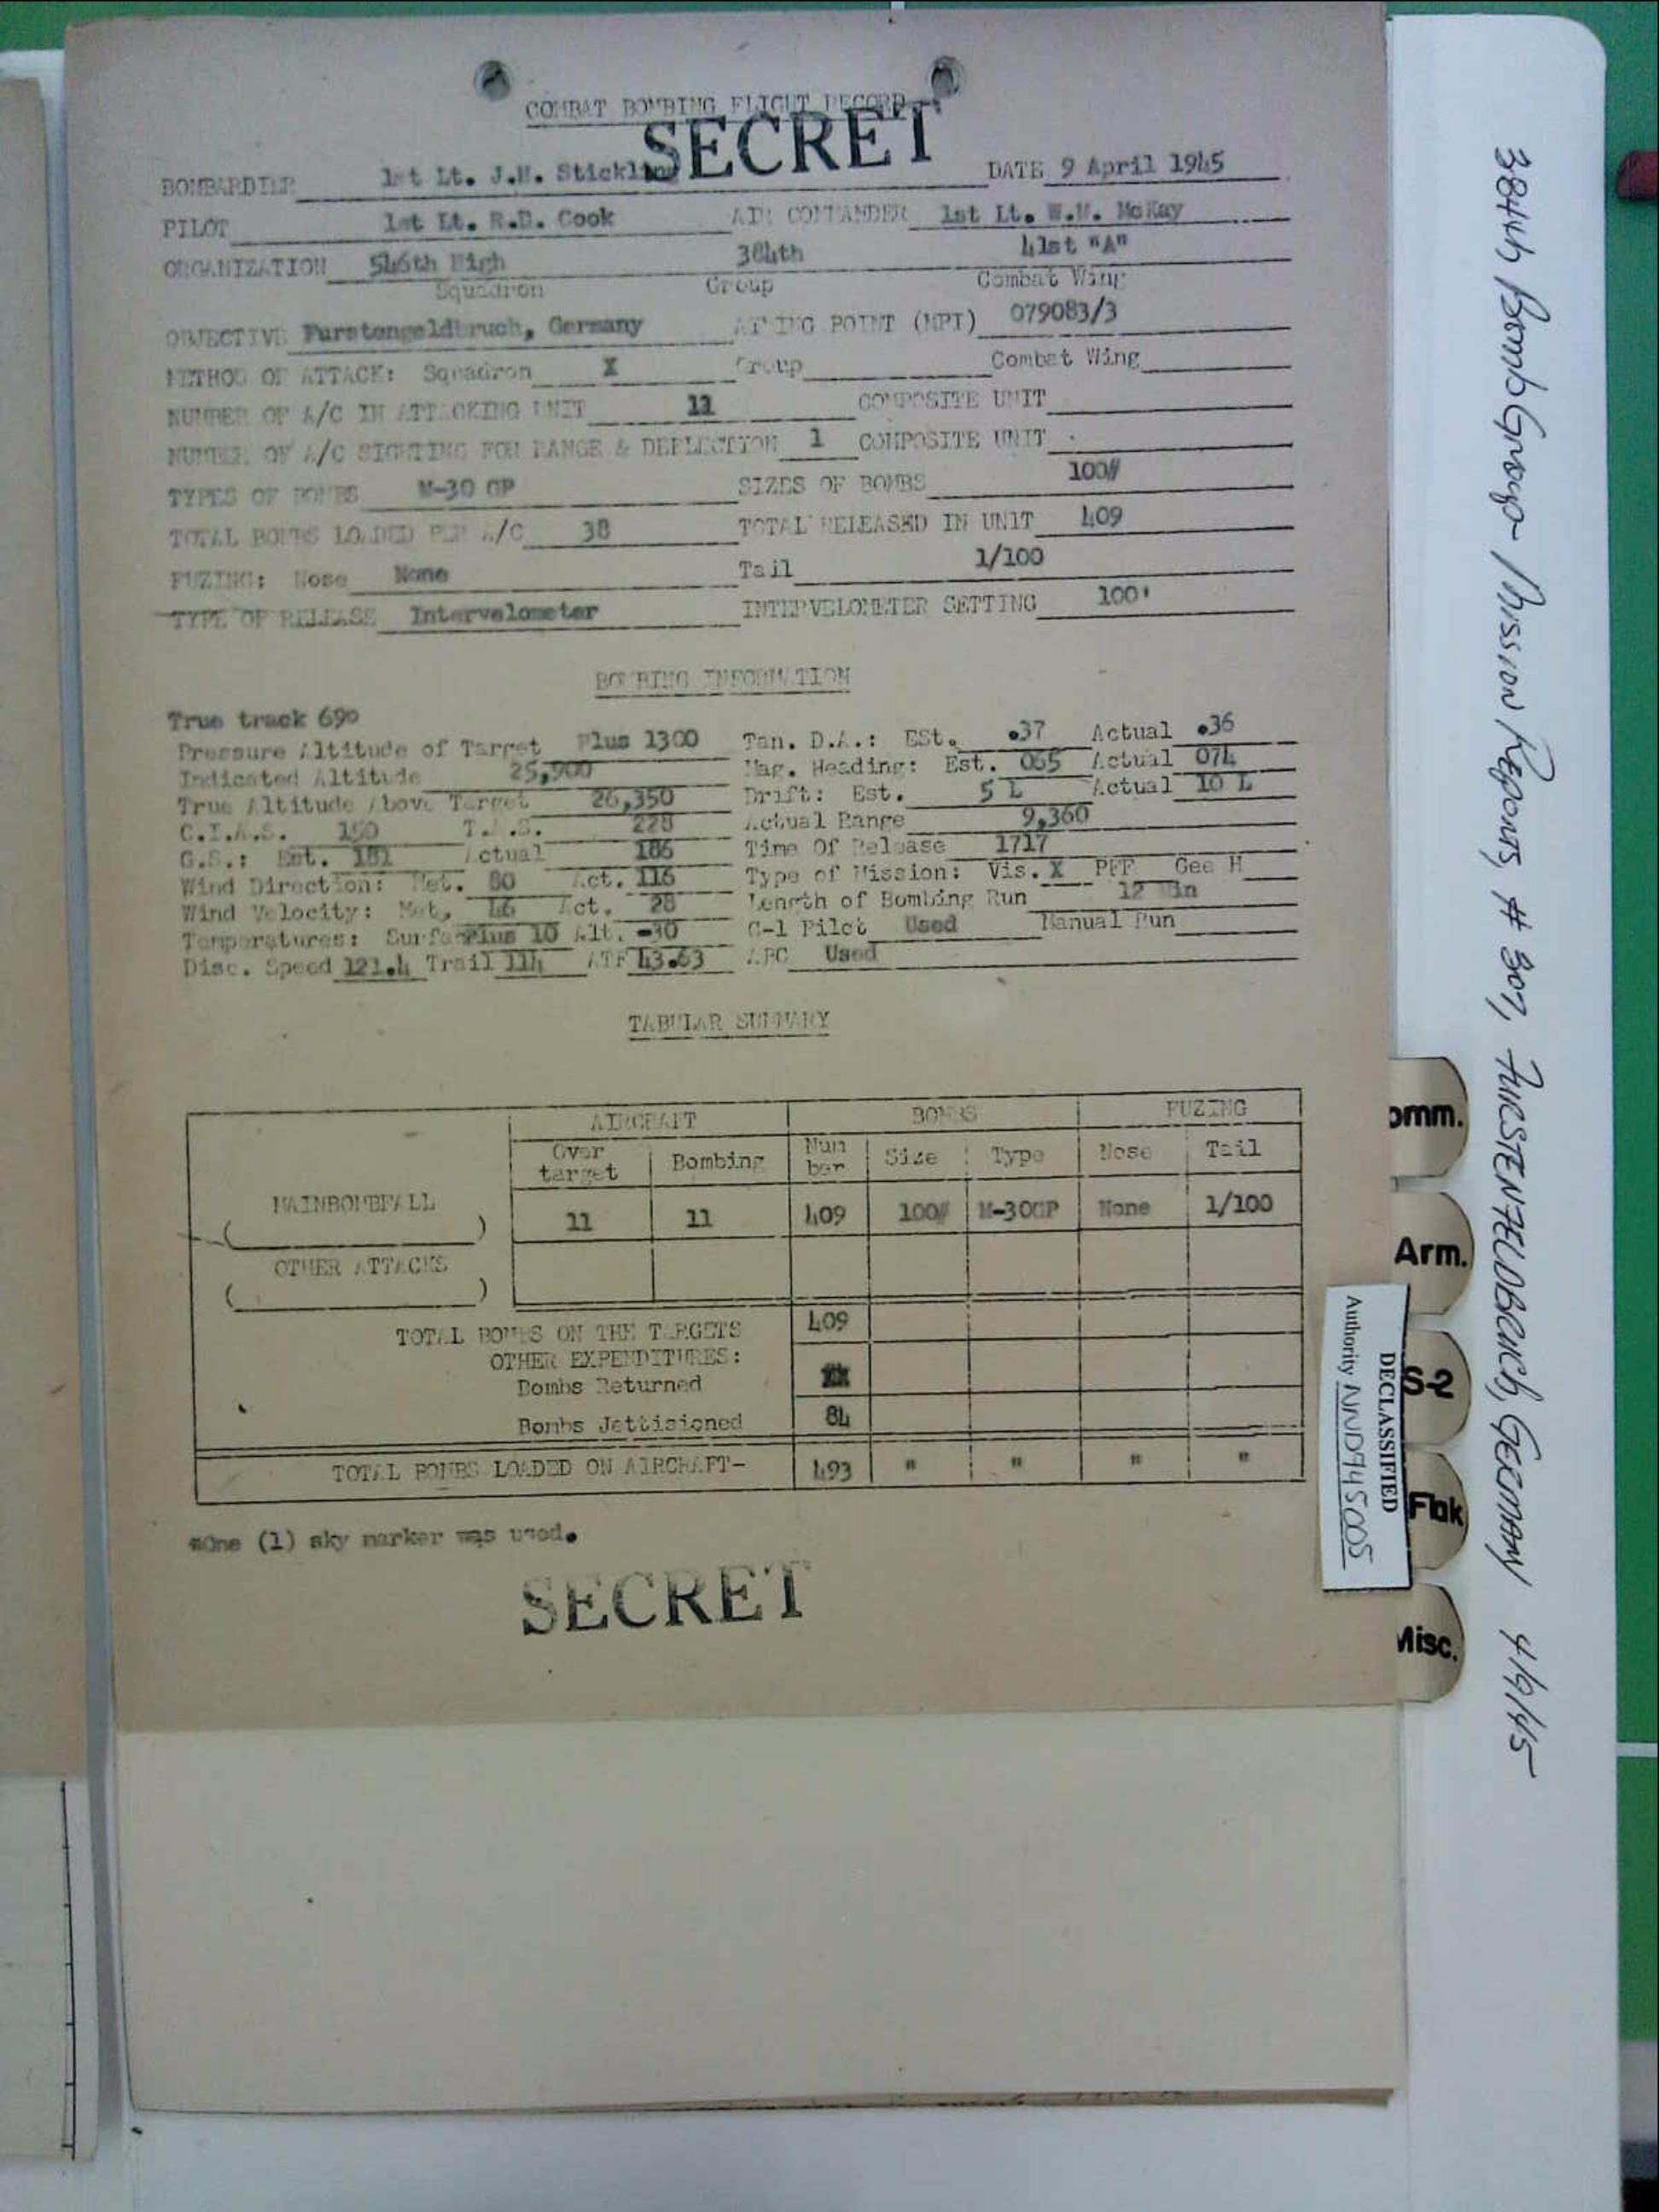 COMBAT BOMBING FLIGHT RECORD
SECRET
BOMBARDIER 1st Lt. J.H. DATE 9 April 1945
PILOT 1st Lt. R.D. Cook AIR COMMANDER 1st Lt. W.M. McKay
ORGANIZATION 546th High 384th 41st "A"
Squadron Group Combat Wing
OBJECTIVE Furstengeldbruch, Germany AIMING POINT (MPI) 079083/3
METHOD OF ATTACK: Squadron X Group Combat Wing
NUMBER OF A/C IN ATTACKING UNIT 11 COMPOSITE UNIT
NUMBER OF A/C SIGHTING FOR RANGE & DEFLECTION 1 COMPOSITE UNIT
TYPES OF BOMBS M-30 GP SIZES OF BOMBS 100#
TOTAL BOMBS LOADED PER A/C 38 TOTAL RELEASED IN UNIT 409
FUZING: Nose None Tail 1/100
TYPE OF RELEASE Intervelometer INTERVELOMETER SETTING 100'
BOMBING INFORMATION
True track 69°
Pressure Altitude of Target Plus 1300 Tan. D.A.: ESt. .37 Actual .36
Indicated Altitude 25,900 Mag. Heading: Est. 065 Actual 074
True Altitude Above Target 26,350 Drift: Est. 5 L Actual 10 L
C.I.A.S. 150 T.A.S. 228 Actual Range 9,360
G.S.: Est. 181 Actual 186 Time Of Release 1717
Wind Direction: Met. 80 Act. 116 Type of Mission: Vis. X PFF Gee H
Wind Velocity: Met. 46 Act. 28 Length of Bombing Run 12 Min
Temperatures: Surface Plus 10 Alt. -30 C-1 Pilot Used Manual Run
Disc. Speed 121.4 Trail 114 ATF 43.63 AFC Used
TABULAR SUMMARY
AIRCRAFT BOMBS FUZING
Over target Bombing Num ber Size Type Nose Tail
MAINBOMBFALL
( ) 11 11 409 100# M-30GP None 1/100
OTHER ATTACKS
( )
TOTAL BOMBS ON THE TARGETS 409
OTHER EXPENDITURES:
Bombs Returned
Bombs Jettisioned 84
TOTAL BOMBS LOADED ON AIRCRAFT- 493 " " " "
*One (1) sky marker was used.
SECRET
omm.
Arm.
S-2
Flak
Misc.
DECLASSIFIED
Authority NND945005
384th Bomb Group - Mission Reports, # 307, FURSTENFELDBRUCH, GERMANY 4/9/45